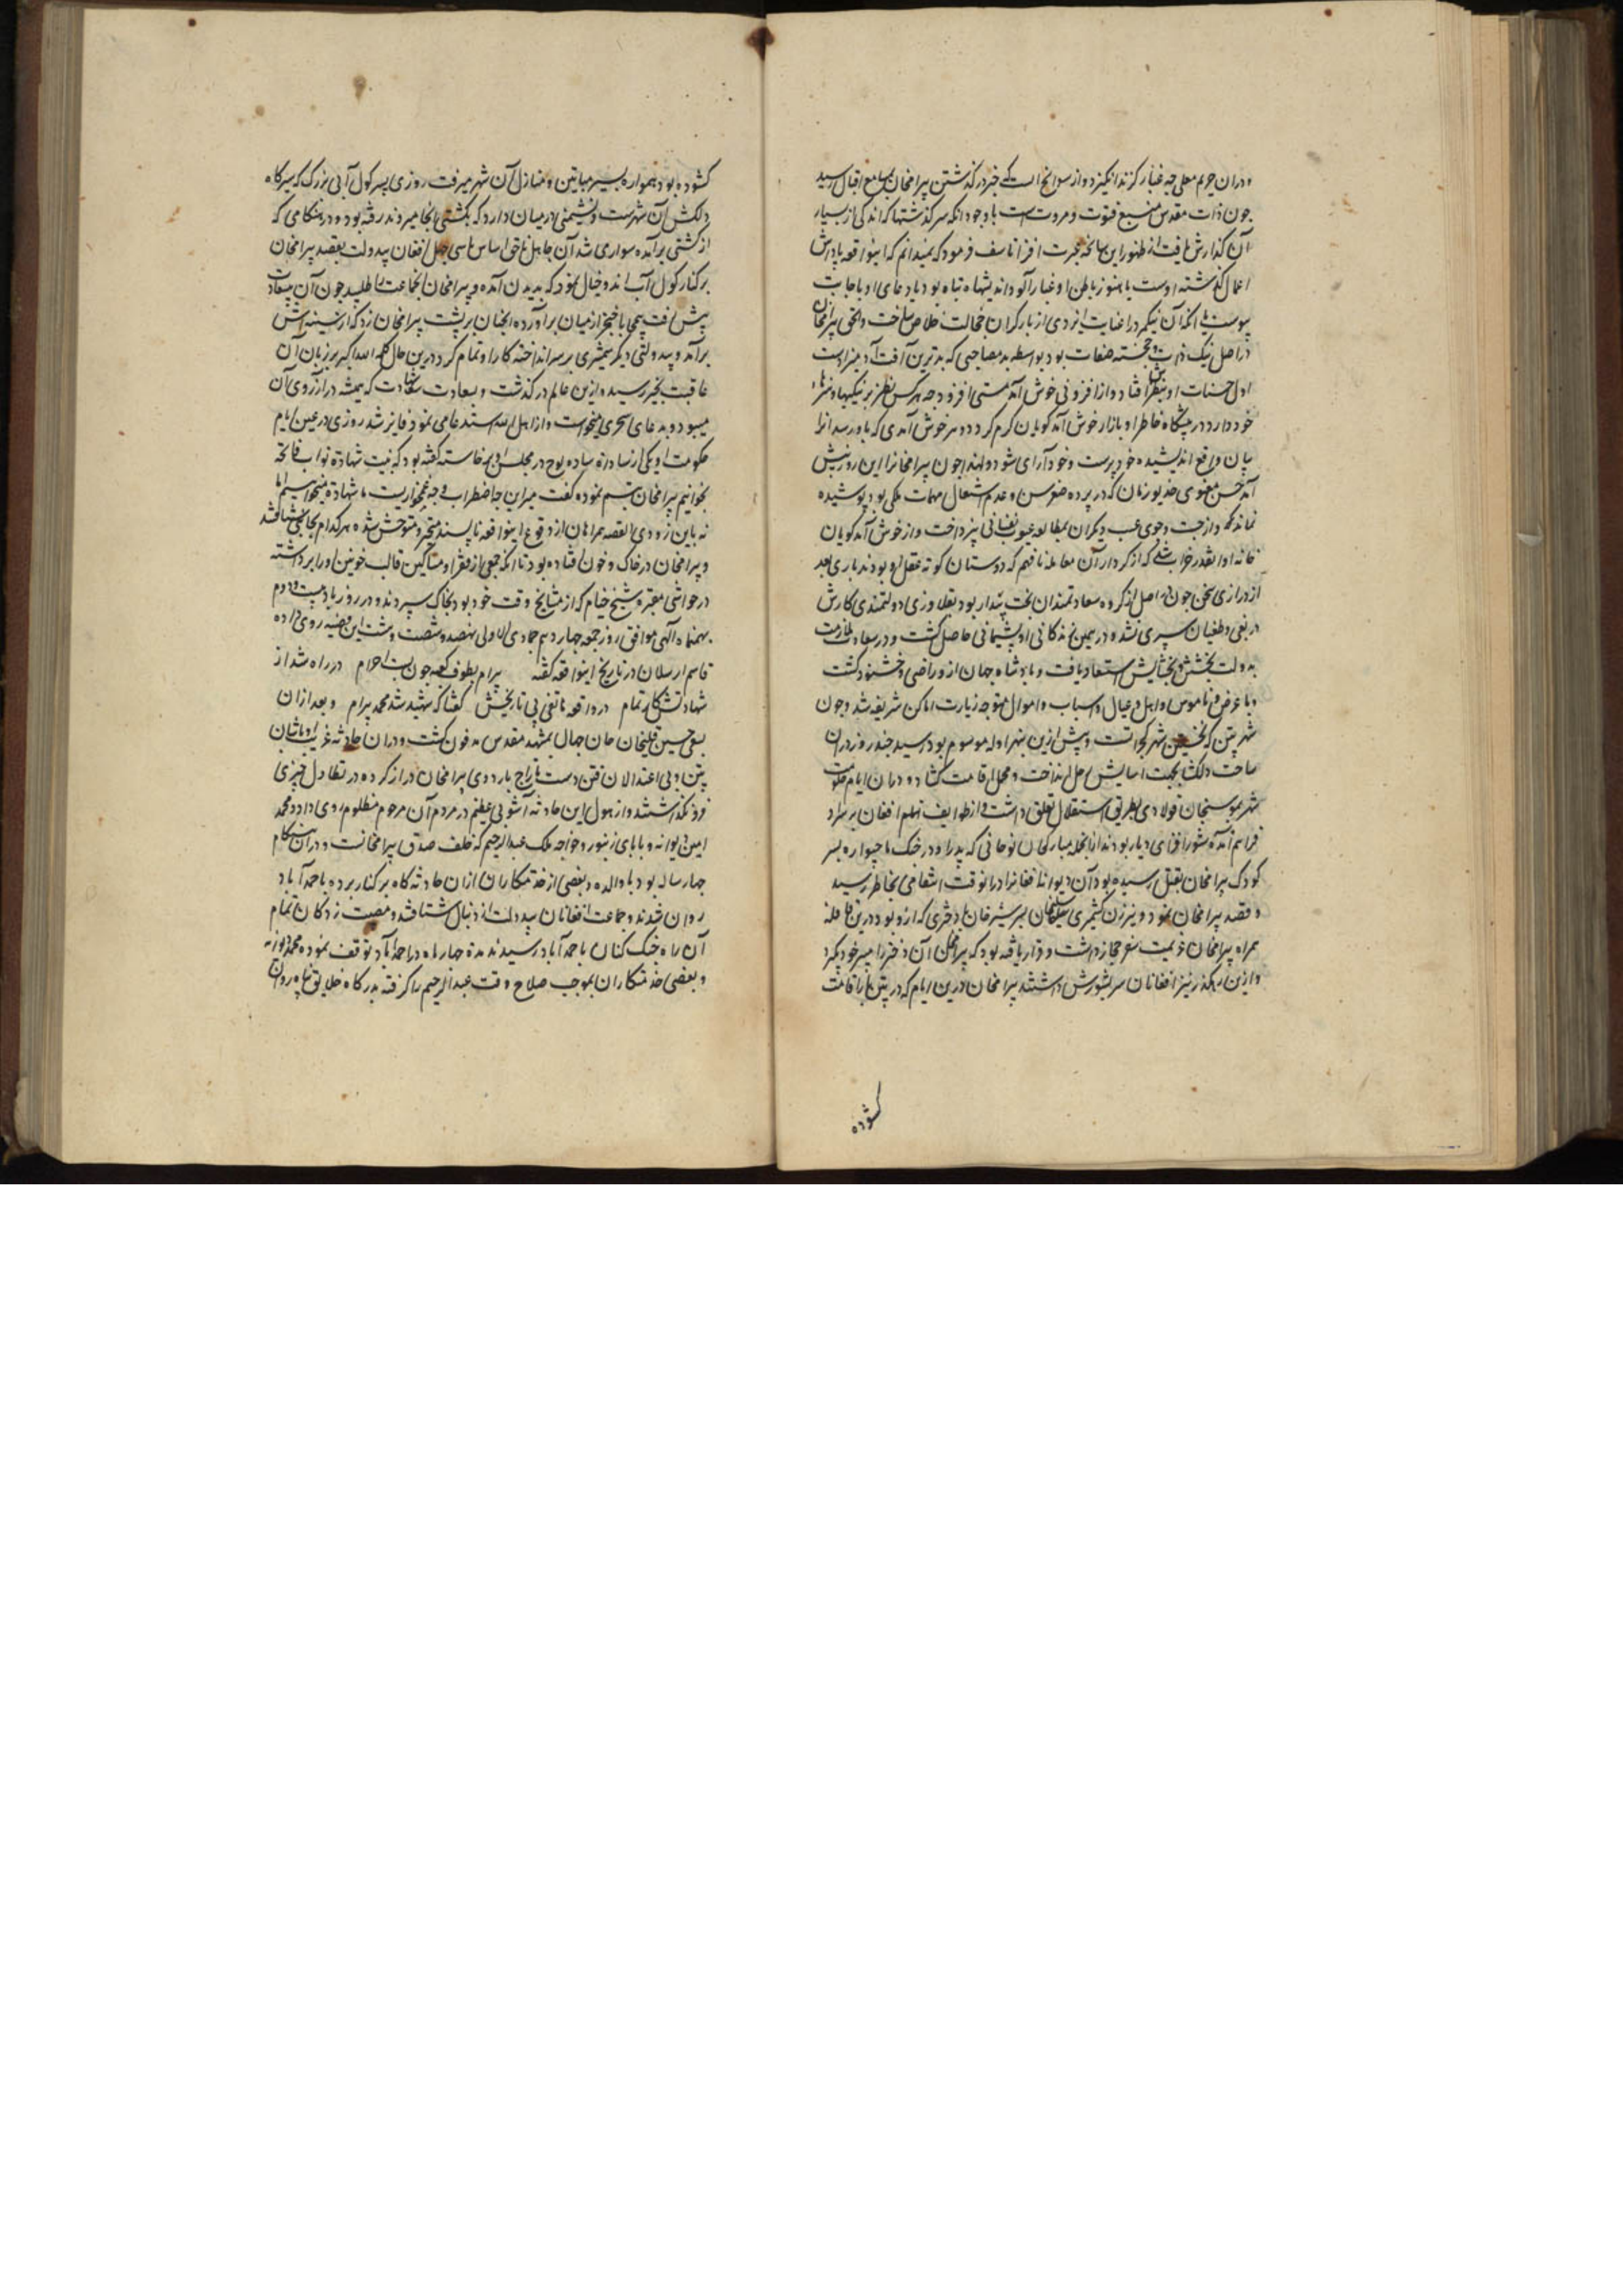 ودران حریم معلی چه غبار گزند انگیزد و از سوانح است که خبر در گذشتن بیرامخان بمسامع اقبال رسید
چون ذات مقدس منبع فتوت و مروت است باوجود انکه سرگذشتها که اندکی از بسیار
آن گذارش یافت از ظهور این سانحه عبرت افزا تاسف فرمود که نمیدانم که اینواقعه پاداش
اعمال گذشته اوست یا هنوز باطن او غبارآلود اندیشهاء تباه بود یا دعای او باجابت
پیوست یا انکه آن نیکمرد را عنایت ایزدی از بار گران خجالت خلاص ساخت والحق بیرامخان
در اصل نیک ذات و خجسته صفات بود بواسطه بد مصاحبی که بدترین آفت آدمیزاد است
اول حسنات او بنظرش افتاد و از افزونی خوش آمد مستی افزود چه هر کس نظر بر نیکیها و هنرهاء
خود دارد در پیشگاه خاطر او بازار خوش آمد گویان گرم گردد و هر خوش آمدی که باو رسد انرا
بیان واقع اندیشیده خودپرست و خودآرای شود و لهذا چون بیرامخانرا این روز پیش
آمد حسن معنوی خدیو زمان که در پرده ضو سن و عدم اشتغال مهمات ملکی بود پوشیده
نماند که و از جست و جوی عیب دیگران بمطالعه عیوب نفسانی نپرداخت و از خوش آمد گویان
خانه او انقدر خراب شد که از کردار آن معامله نافهم که دوستان کوته عقل او بودند باری بعد
از درازی سخن چون در اصل از گروه سعادتمندان بخت بیدار بود بقلاوزی دولتمندی کارش
در بغی و طغیان سپری نشده در همین زندگانی او پشیمانی حاصل گشت و در سعادت ملازمت
بدولت بخشش و بخشایش استسعاد یافت و بادشاه جهان ازو راضی و خشنود گشت
و با عرض و ناموس و اهل و عیال و اسباب و اموال متوجه زیارت اماکن شریفه شد و چون
شهر پتن که نخستین شهر گجراتست و پیش ازین بنهرواله موسوم بود رسید چند روز دران
ساحت دلگشا بجهت اسایش رحل انداخت و محمل اقامت گشاد و دران ایام حکومت
شهر بموسیخان فولادی بطریق استقلال تعلق داشت و از طوایف انام افغان بر سر او
فراهم آمده شورافزای دیار بودند از انجمله مبارکخان نوحانی که پدر او در جنگ ماچیواره بسر
کودک بیرامخان بقتل رسیده بود آن دیوانه افغانرا در انوقت انتقامی بخاطر رسید
و قصد بیرامخان نمود و نیز زن کشمیری سلیمخان پسر شیرخان با دختری که ازو بود درین قافله
همراه بیرامخان عزیمت سفر حجاز داشت و قرار یافته بود که بیرامخان آن دختر را به پسر خود بگیرد
و ازین رهگذر نیز افغانان سر بشورش داشتند بیرامخان درین ایام که در پتن بار اقامت
گشوده
گشوده بود همواره بسیر بساتین و منازل آن شهر میرفت روزی بسر کول آبی بزرگ که سیرگاه
دلکش آن شهرست و نشیمنی در میان دارد که بکشتی بآنجا میروند رفته بود و در هنگامی که
از کشتی برآمده سواری شد آن جاهل ناحق اساس با سی چهل افغان بیدولت بقصد بیرامخان
بر کنار کول آب آمد و خیال نمود که بدیدن آمده و بیرامخان انجماعت را طلبید چون آن بیسعادت
پیش رفت بیمحابا خنجر از میان برآورده انچنان بر پشت بیرامخان زد که از سینه اش
برآمد و بیدولتی دیگر شمشیری بر سر انداخته کار او تمام کرد درین حال کلمه الله اکبر بر زبان آن
عاقبت بخیر رسید و ازین عالم درگذشت و بسعادت شهادت که همیشه در آرزوی آن
میبود و بدعای سحری میخواست و از اهل الله استدعا می نمود فایز شد روزی در عین ایام
حکومت او یکی از سادات ساده لوح در مجلس او برخاسته گفته بود که بنیت شهادة نواب فاتحه
بخوانیم بیرامخان تبسم نموده گفت میر این چه اضطراب و چه غمخواریست ما شهادة میخواهیم اما
نه باین زودی القصه همراهان از وقوع اینواقعه ناپسند متحیر و متوحش شده هر کدام بجانبی شتافتند
و بیرامخان در خاک و خون افتاده بود تا انکه جمعی از فقرا و مساکین قالب خونین او را برداشته
در حواشی مقبره شیخ حسام که از مشایخ وقت خود بود بخاک سپردند و در روز باد بیست و دوم
بهمنماه آلهی موافق روز جمعه چهاردهم جمادی الاولی نهصد و شصت و هشت این قضیه روی داده
قاسم ارسلان در تاریخ اینواقعه گفته بیرام بطوف کعبه چون بست احرام در راه شد از
شهادتش کار تمام در واقعه هاتفی پی تاریخش گفتا که شهید شد محمد بیرام و بعد ازان
بسعی حسین قلیخان خان جهان بمشهد مقدس مدفون گشت و دران حادثه غریب اوباشان
پتن و بی اعتدالان فتن دست تاراج باردوی بیرامخان دراز کرده در تطاول چیزی
فرو نگذاشتند و از هول این حادثه آشوبی عظیم در مردم آن مرحوم مظلوم روی داد و محمد
امین دیوانه و بابای زنبور و خواجه ملک عبدالرحیم که خلف صدق بیرامخانست و دران هنگام
چهار ساله بود با والده و بعضی از خدمتکاران ازان حادثه گاه بر کنار برده باحمدآباد
روان شدند و جماعت افغانان بیدولت از دنبال شتافتند و مصیبت زدگان تمام
آن راه جنگ کنان باحمدآباد رسیدند مدة چهار ماه در احمدآباد توقف نموده محمد دیوانه
و بعضی خدمتکاران بموجب صلاح وقت عبدالرحیم را گرفته بدرگاه خلایق پناه روان